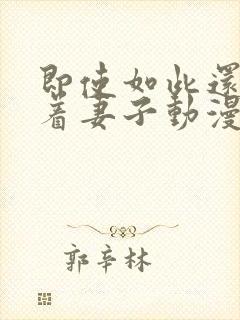 即使如此還
着妻子動漫
郭辛林